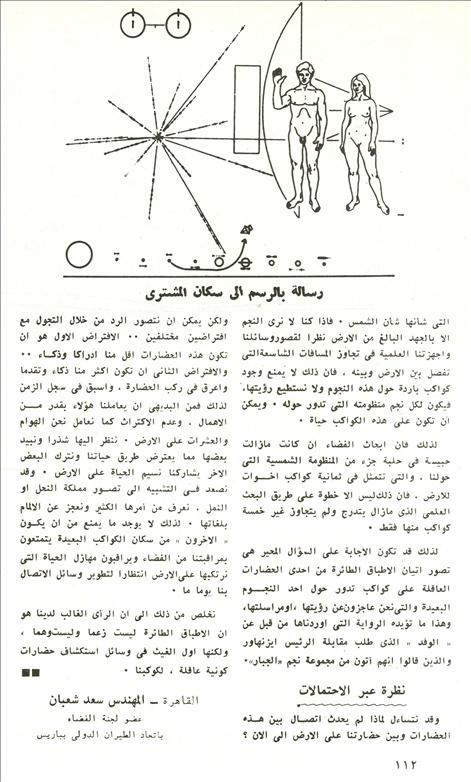 رسالة بالرسم الى سكان المشترى
التى شانها شان الشمس ٠ فاذا كنا لا نرى النجم
الا بالجهد البالغ من الارض نظرا لقصوروسائلنا
واجهزتنا العلمية فى تجاوز المسافات الشاسعةالتى
تفصل بين الارض وبينه ، فان ذلك لا يمنع وجود
كواكب باردة حول هذه النجوم ولا نستطيع رؤيتها،
فيكون لكل نجم منظومته التى تدور حوله ٠ ويمكن
ان تكون على هذه الكواكب حياة ٠
لذلك فان ابحاث الفضاء ان كانت مازالت
حبيسة فى حلبة جزء من المنظومة الشمسية التى
حولنا ، والتى تتمثل فى ثمانية كواكب اخـوات
للارض ، فان ذلكليس الا خطوة على طريق البحث
العلمى الذى مازال يتدرج ولم يتجاوز غير خمسة
كواكب منها فقط ٠
لذلك قد تكون الاجابة على السؤال المحير هى
تصور اتيان الاطباق الطائرة من احدى الحضارات
العاقلة على كواكب تدور حول احد النجـوم
البعيدة والتىنحن عاجزونعن رؤيتها ،اومراسلتها،
وهذا ما تؤيده الرواية التى اوردناها من قبل عن
« الوفد » الذى طلب مقابلة الرئيس ايزنهاور
والذين قالوا انهم آتون من مجموعة نجم «الجبار»٠
نظرة عبر الاحتمالات
وقد نتساءل لماذا لم يحدث اتصال بين هـذه
الحضارات وبين حضارتنا على الارض الى الان ؟
ولكن يمكن ان نتصور الرد من خلال التجول مع
افتراضين مختلفين ٠٠ الافتراض الاول هو ان
تكون هذه الحضارات اقل منا ادراكا وذكـاء ٠٠
والافتراض الثانى ان تكون اكثر منا ذكاء وتقدما
واعرق فى ركب الحضارة ، واسبق فى سجل الزمن
لذلك فمن البديهى ان يعاملنا هؤلاء بقدر مـن
الاهمال ، وعدم الاكتراث كما نعامل نحن الهوام
والحشرات على الارض ٠ ننظر اليها شذرا ونبيد
بعضها مما يعترض طريق حياتنا ونترك البعض
الاخر يشاركنا نسيم الحياة على الارض ٠ وقد
نصعد فـى التشبيه الى تصـور مملكة النحل او
النمل ، نعرف من أمرها الكثير ونعجز عن الالمام
بلغاتها ٠ لذلك لا يوجد ما يمنع من ان يكـون
« الاخرون » من سكان الكواكب البعيدة يتمتعون
بمراقبتنا من الفضاء ويراقبون مهازل الحياة التى
نرتكبها علىالارض انتظارا لتطوير وسائل الاتصال
بنا يوما ما ٠
نخلص من ذلك الى ان الرأى الغالب لدينا هو
ان الاطباق الطائرة ليست زعما وليستوهما ،
ولكنها اول الغيث فى وسائل استكشاف حضارات
كونية عاقلة ، لكوكبنا ٠
القاهرة ــ المهندس سعد شعبان
عضو لجنة الفضاء
باتحاد الطيران الدولى بباريس
١١٢